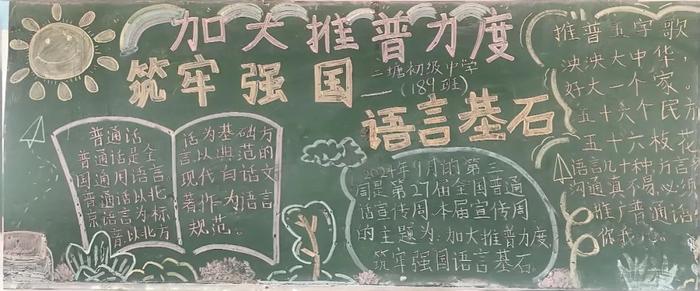 加大推普力度
筑牢强国
二塘初级中学
(189班)
语言基石
普通话
普通话是全
国通用语言
普通话以北
京语言为标
音以北方
话为基础方
言以典范的
现代白话文
著作为语言
规范。
2024年9月的第三
周是第27届全国普通
话宣传周本届宣传周
的主题为:加大推普力度
筑牢强国语言基石
推普五字歌
泱泱大中华
好大一个家
五十六个民
五十六枝花
语言几十种
沟通真不易
推广普通话
你我